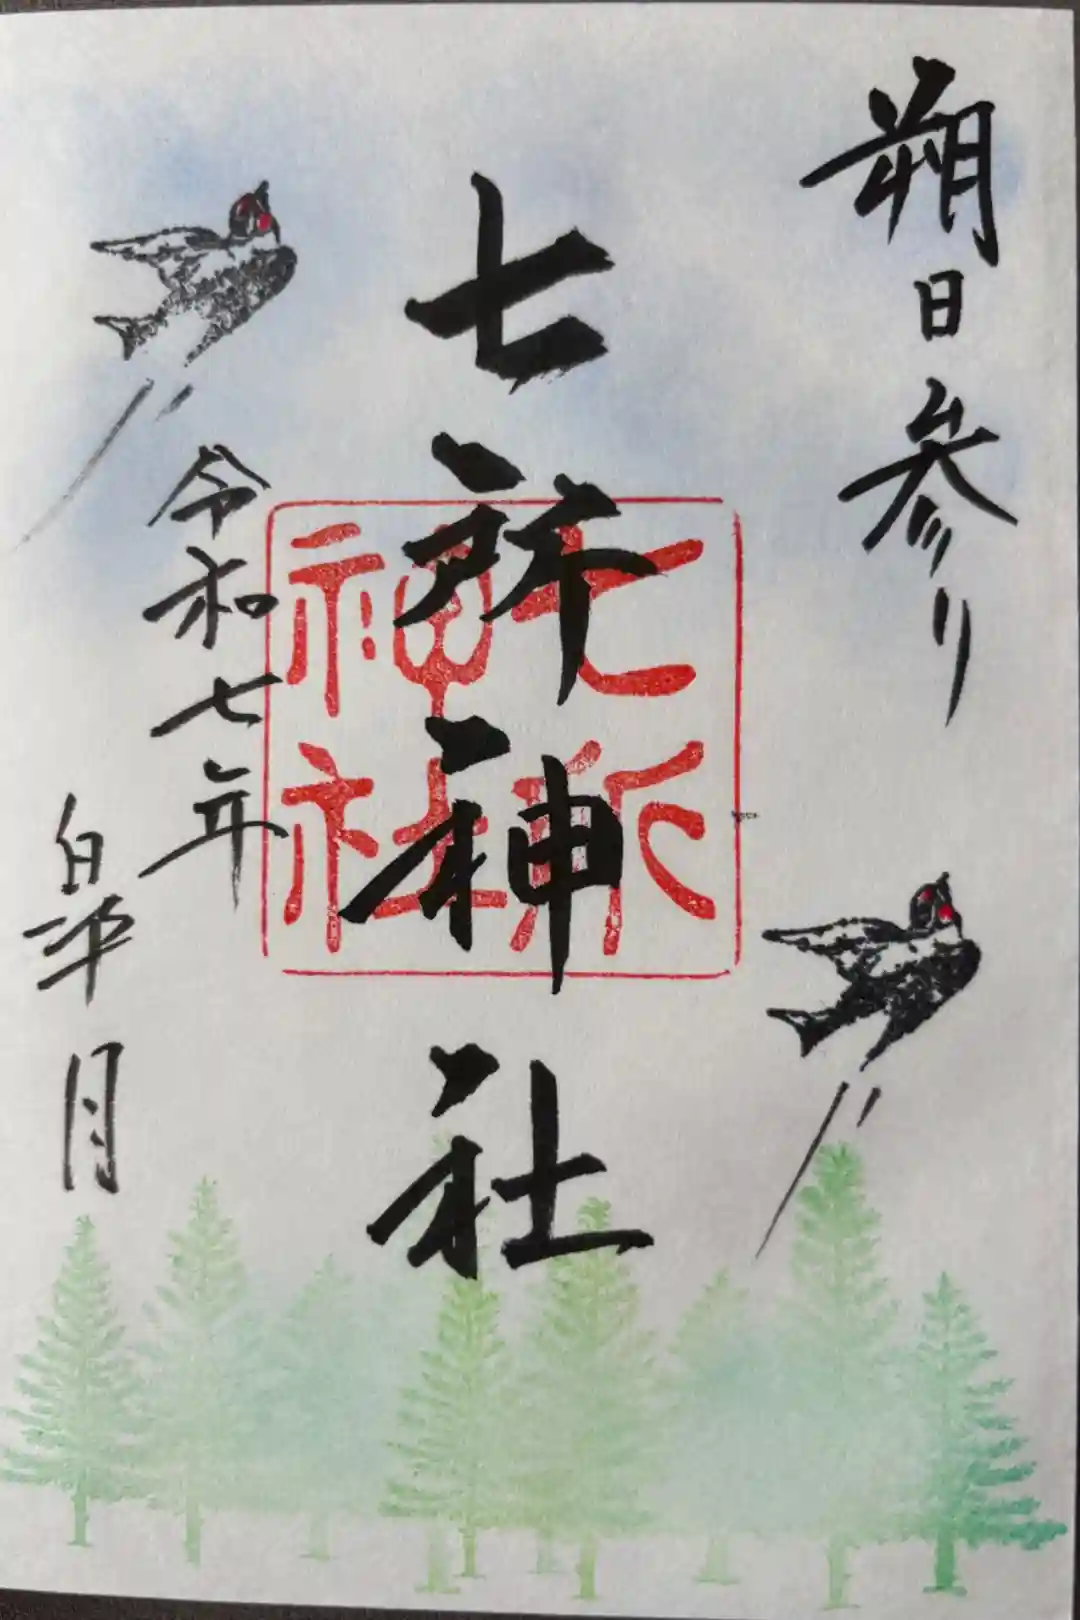 朔日参り
七所神社
七所神社
令和七年
皐月